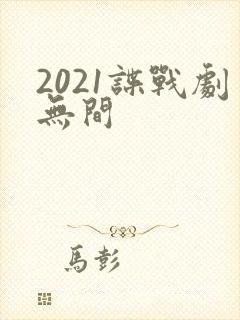 2021諜戰劇
無間
馬彭